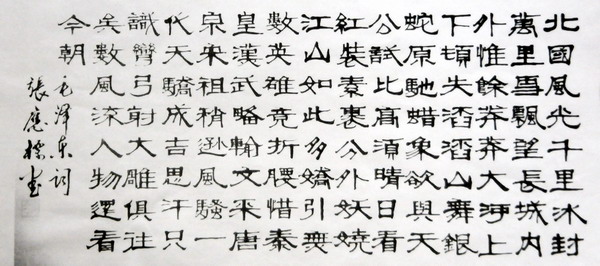 北國風光千里冰封
萬里雪飄望長城內
外惟餘莽莽大河上
下頓失滔滔山舞銀
蛇原馳蜡象欲與天
公試比高須晴日看
紅裝素裹分外妖嬈
江山如此多嬌引無
數英雄竞折腰惜秦
皇漢武略輸文采唐
宗宋祖稍遜風騷一
代天驕成吉思汗只
識彎弓射大雕俱往
矣數風流人物還看
今朝
毛澤东词
張應書